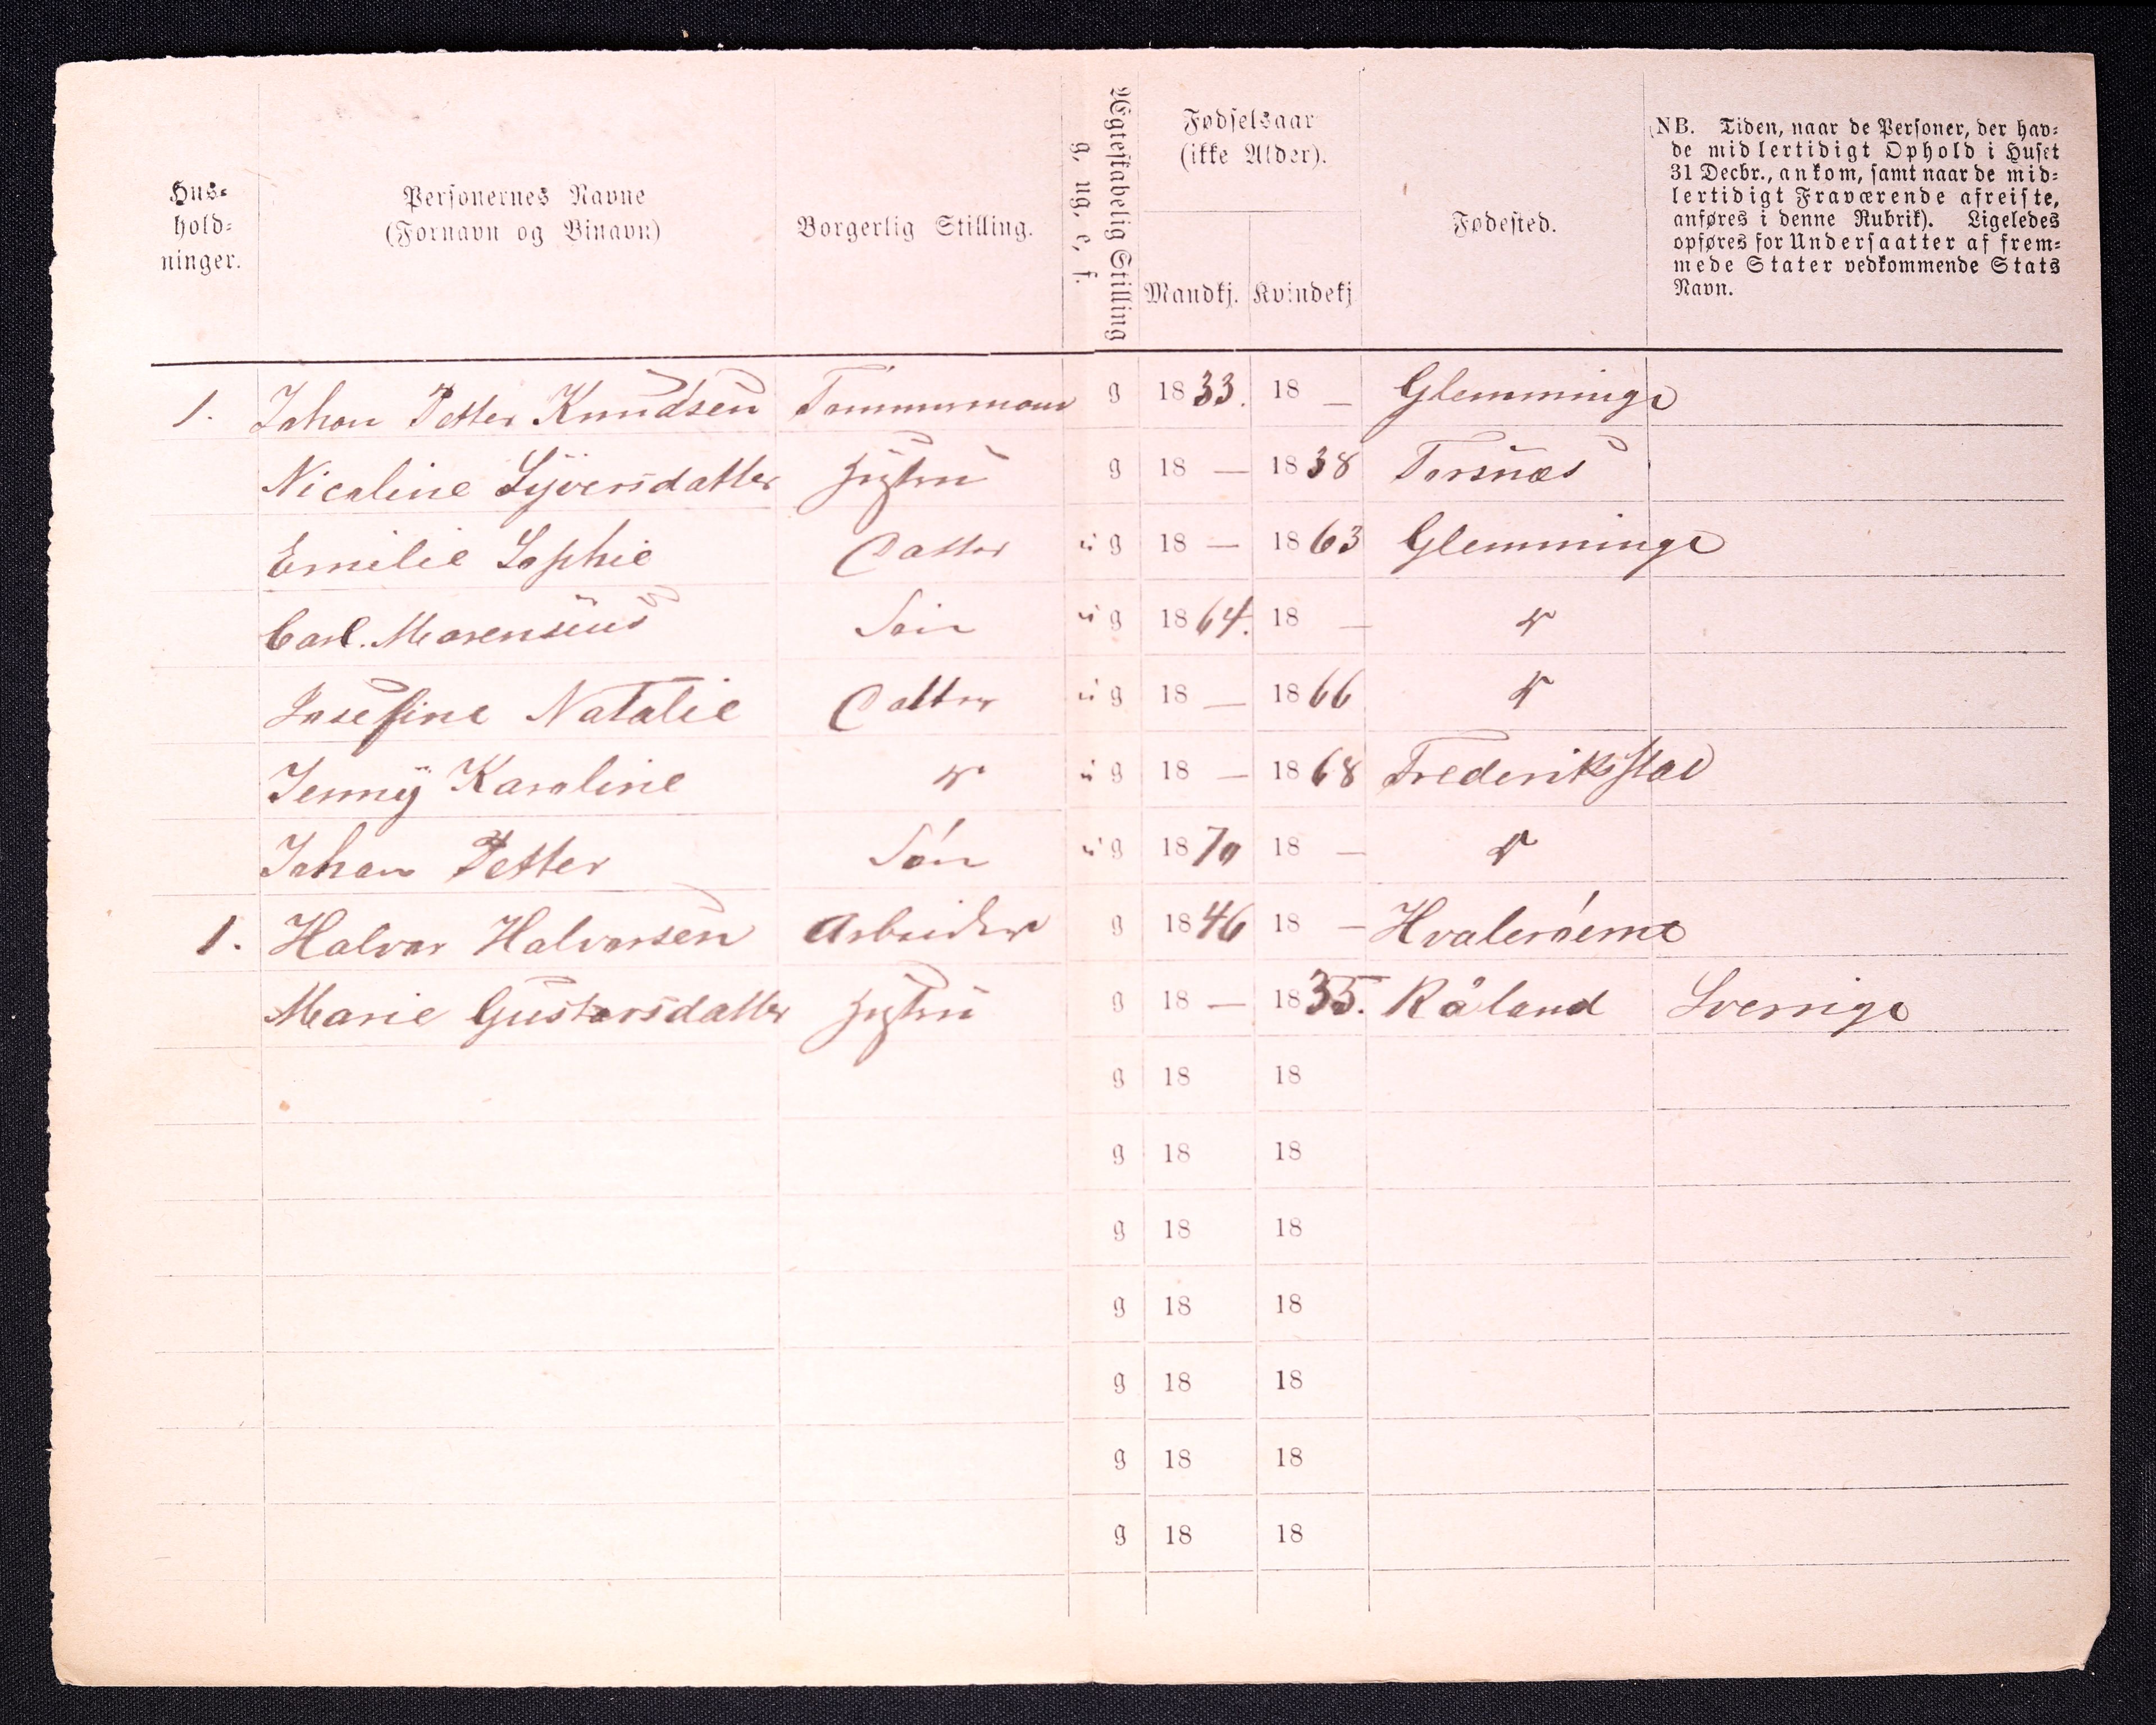 Hus-
hold-
ninger.
Personernes Navne
(Fornavn og Binavn)
Borgerlig Stilling.
Ægteskabelig Stilling
g, ug, e, f.
Fødselsaar
(ikke Alder).
Mandkj. Kvindekj
Fødested.
(NB. Tiden, naar de Personer, der hav-
de midlertidigt Ophold i Huset
31 Decbr., ankom, samt naar de mid-
lertidigt Fraværende afreiste,
anføres i denne Rubrik). Ligeledes
opføres for Undersaatter af frem-
mede Stater vedkommende Stats
Navn.
1. Johan Petter Knudsen Tømmermand g 1833. 18 — Glemminge
Nicoline Syversdatter Hustru g 18 — 1838 Torsnæs
Emilie Sophie Datter ug 18 — 1863 Glemminge
Carl. Marensius Søn ug 1864. 18 —
Josefine Natalie Datter ug 18 — 1866
Jenny Karoline ug 18 — 1868 Frederikstad
Johan Petter Søn ug 1870 18 —
1. Halvor Halvorsen Arbeider g 1846 18 — Hvalerøerne
Marie Gustavsdatter Hustru g 18 — 1835. Råland Sverrige
g 18 18
g 18 18
g 18 18
g 18 18
g 18 18
g 18 18
g 18 18